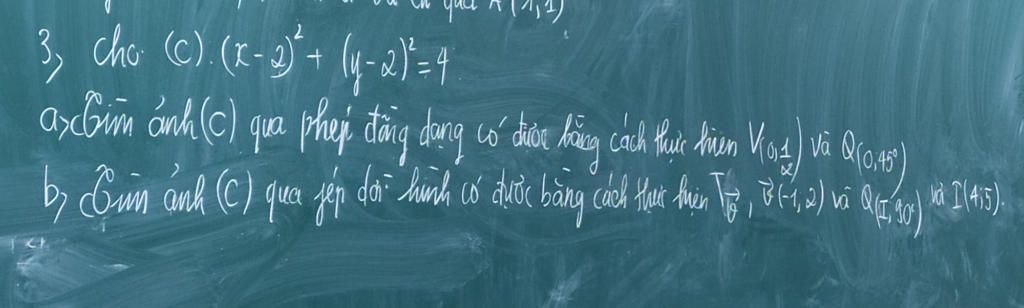 qua A(1,1)
3, Cho (C). (x-2)² + (y-2)² = 4
a, Tìm ảnh (C) qua phép đồng dạng có được bằng cách thực hiện V(0,1/2) và Q(0,45°)
b, Tìm ảnh (C) qua fép dời hình có được bằng cách thực hiện T_v⃗, v⃗(-1,2) và Q(I,90°) và I(4;5).